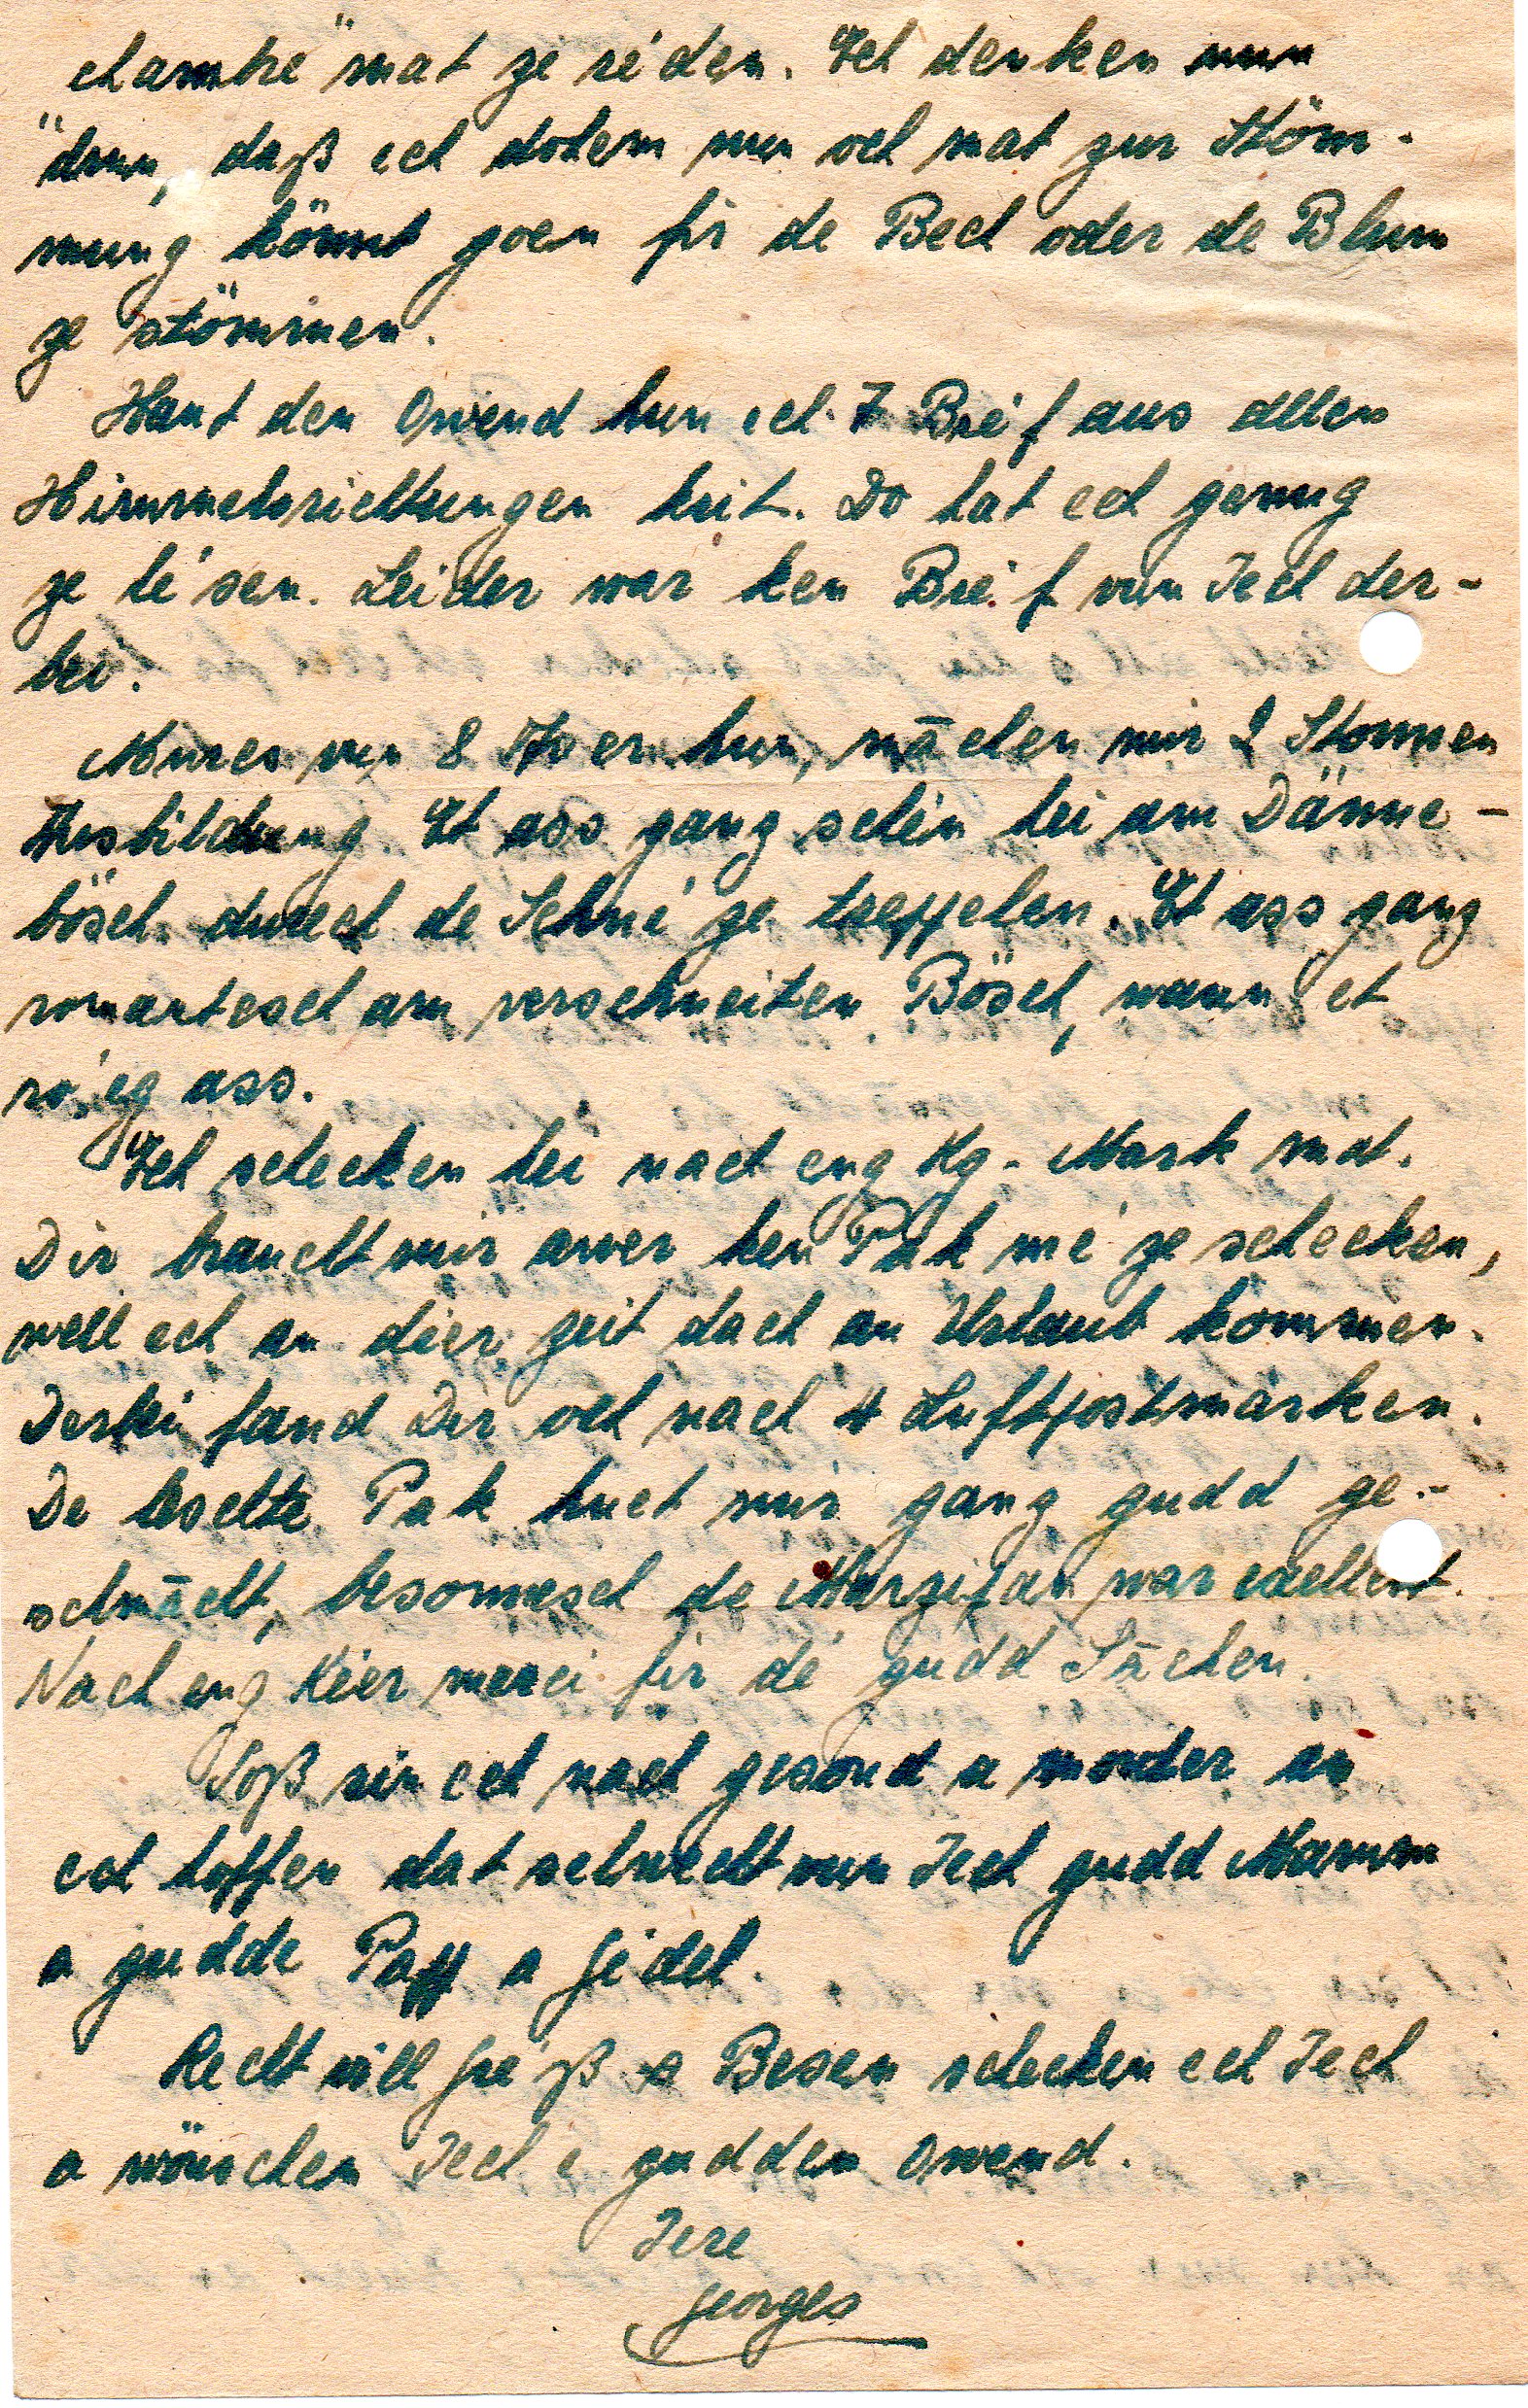 chambre" mat ze ré'den. Ech denken nun
drun, daß ech dotem nun och mat zur Stöm-
mung könnt goen fir de Bech oder de Blum
ze stömmen.
Haut den Owend hun ech 7 Bréf aus allen
Himmelsrichtungen krit. Do hat ech genug
ze lé'sen. Leider war ken Bréf vun Iech der-
bei.
Mures vun 8 Auer hun, māchen mir 2 Stonnen
Ausbildung. Et ass ganz schén hei am Dänne-
bösch duerch de Schné ze trepplen. Et ass ganz
romantesch am verschneiten Bösch, wann et
ró'eg ass.
Ech schecken hei nach eng Kg.-Mark mat.
Dir braucht mir awer ken Pak mé ze schecken,
well ech an dier zeit dach an Urlaub kommen.
Derbei fand Dir och nach 4 Luftpostmarken.
De leschte Pak huet mir ganz gudd ge-
schmācht, besonnesch de Marzipan war exellent.
Nach eng Kéier merci fir dé gudd Sāchen.
Soß sin ech nach gesond a monter an
ech hoffen dat selwecht vun Iech gudd Mamm
a gudde Papp a Gé'del.
Recht vill Gré'ß a Besen schecken ech Iech
a wönschen Iech e gudden Owend.
Iere
Georges